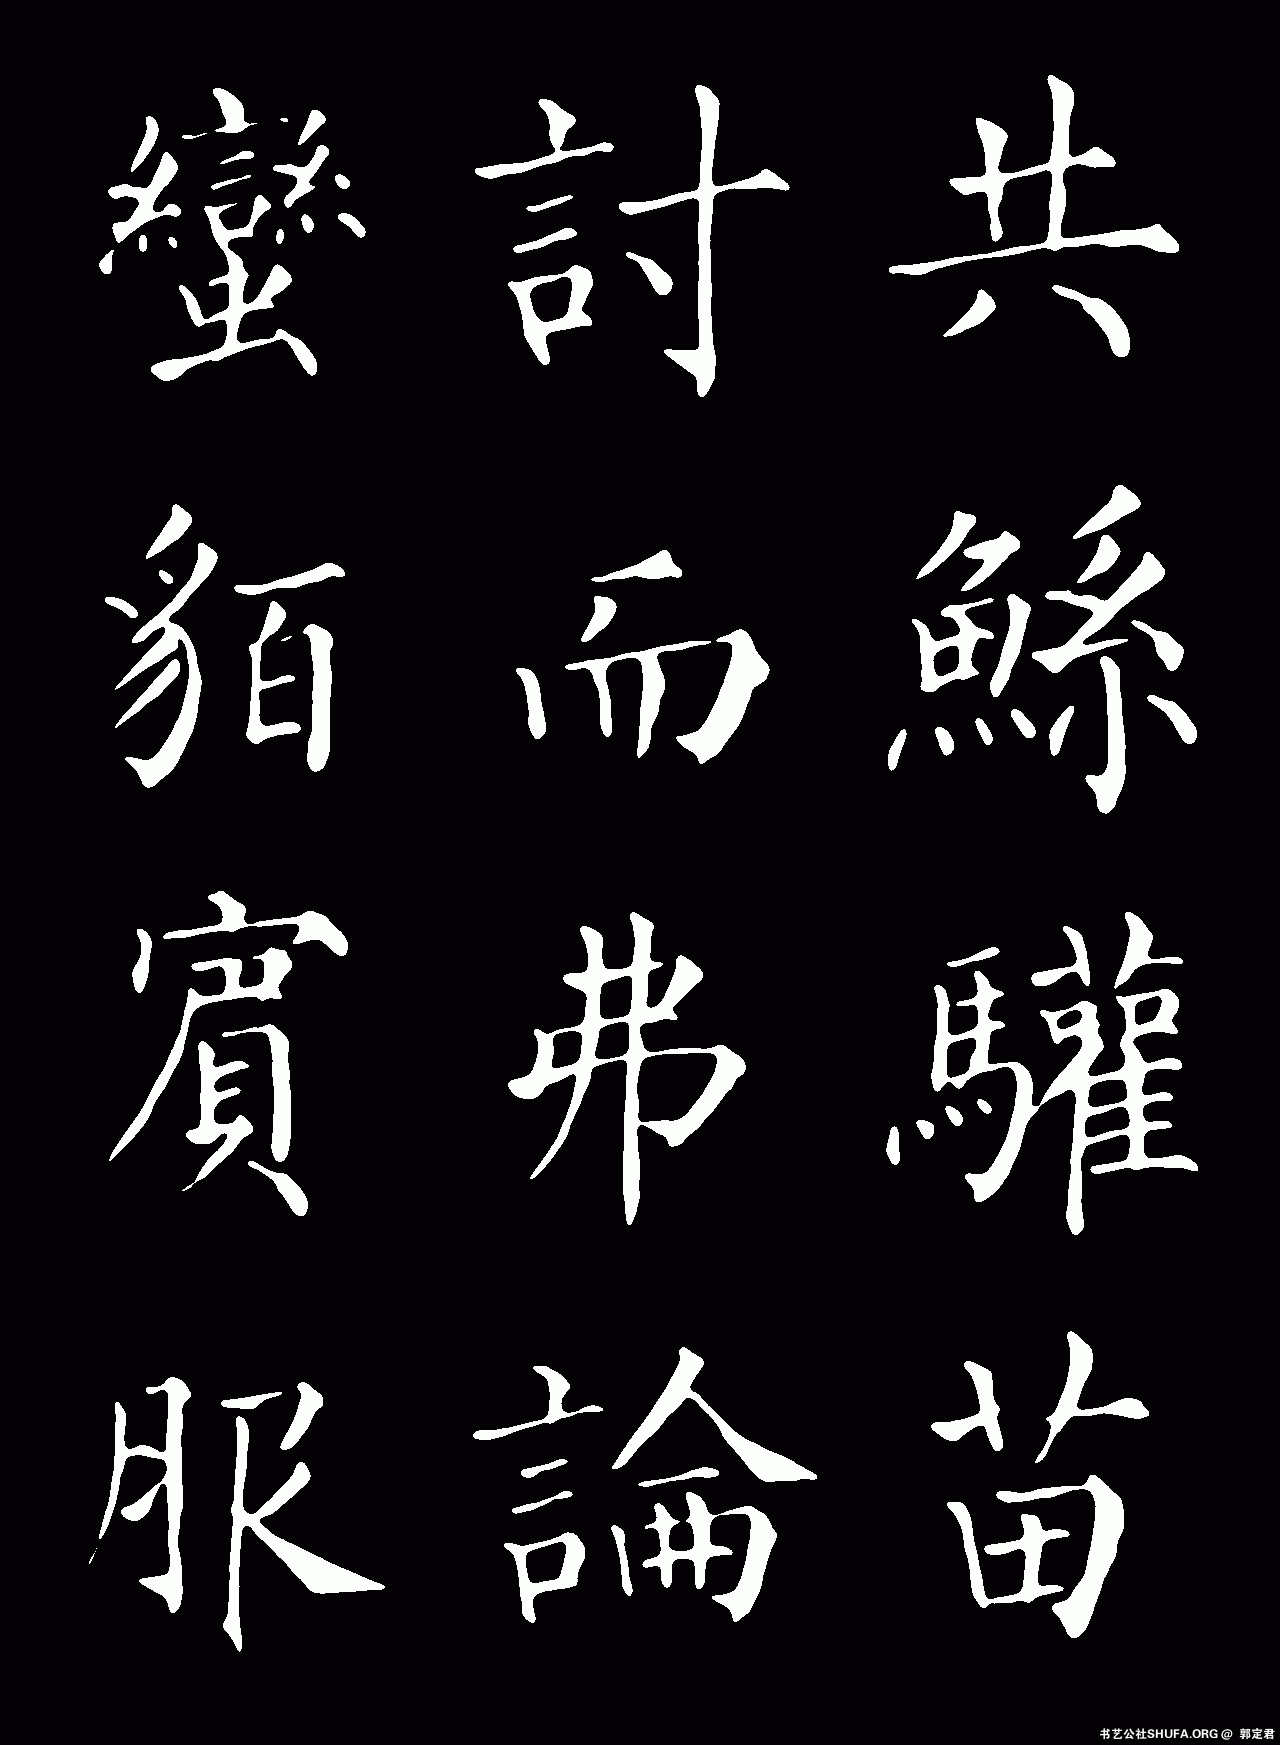 共鯀驩苗
討而弗論
蠻貊賓服
书艺公社SHUFA.ORG @ 郭定君